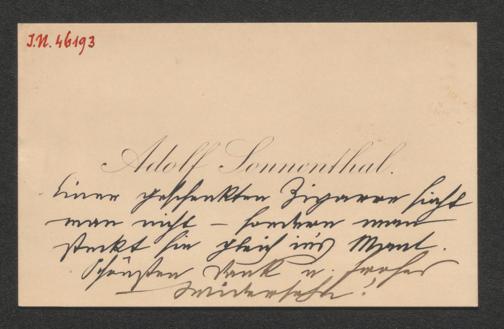 I.N. 46193
Adolf Sonnenthal.
Einer geschenkten Zigarre sieht
man nicht – sondern man
steckt sie gleich in's Maul.
Schönsten Dank u. frohes
Wiedersehn!